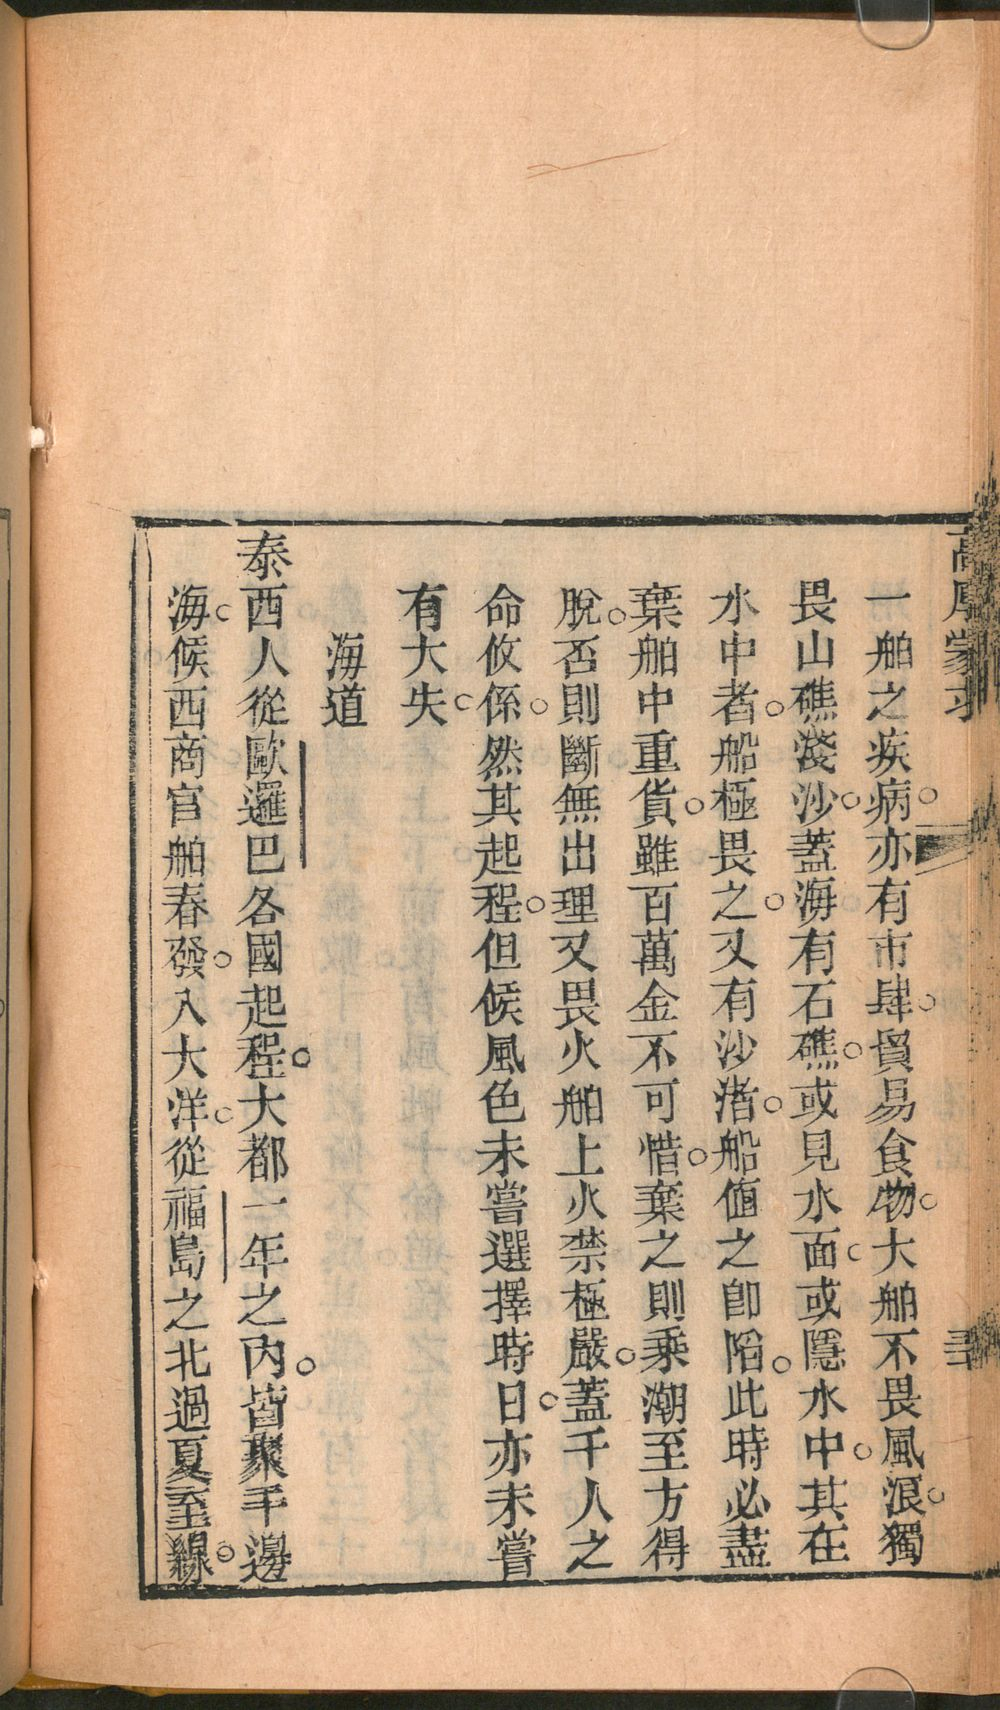 一舶之疾病。亦有市肆。貿易食物。大舶不畏風浪。獨
畏山礁淺沙。蓋海有石礁。或見水面。或隱水中。其在
水中者。船極畏之。又有沙渚。船值之卽陷。此時必盡
棄舶中重貨。雖百萬金不可惜。棄之則乘潮至方得
脫。否則斷無出理又畏火舶上火禁極嚴。蓋千人之
命攸係。然其起程。但候風色未嘗選擇時日。亦未嘗
有大失。
海道
泰西人從歐邏巴各國起程。大都一年之內。皆聚于邊
海。候西商官舶春發。入大洋。從福島之北過夏至線。
高厚蒙求